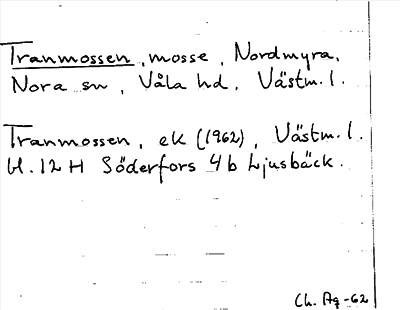 Tranmossen, mosse, Nordmyra,
Nora sn, Våla hd, Västm. l.
Tranmossen, ek (1962), Västm. l.
bl. 12 H Söderfors 4 b Ljusbäck.
Ch. Ag -62